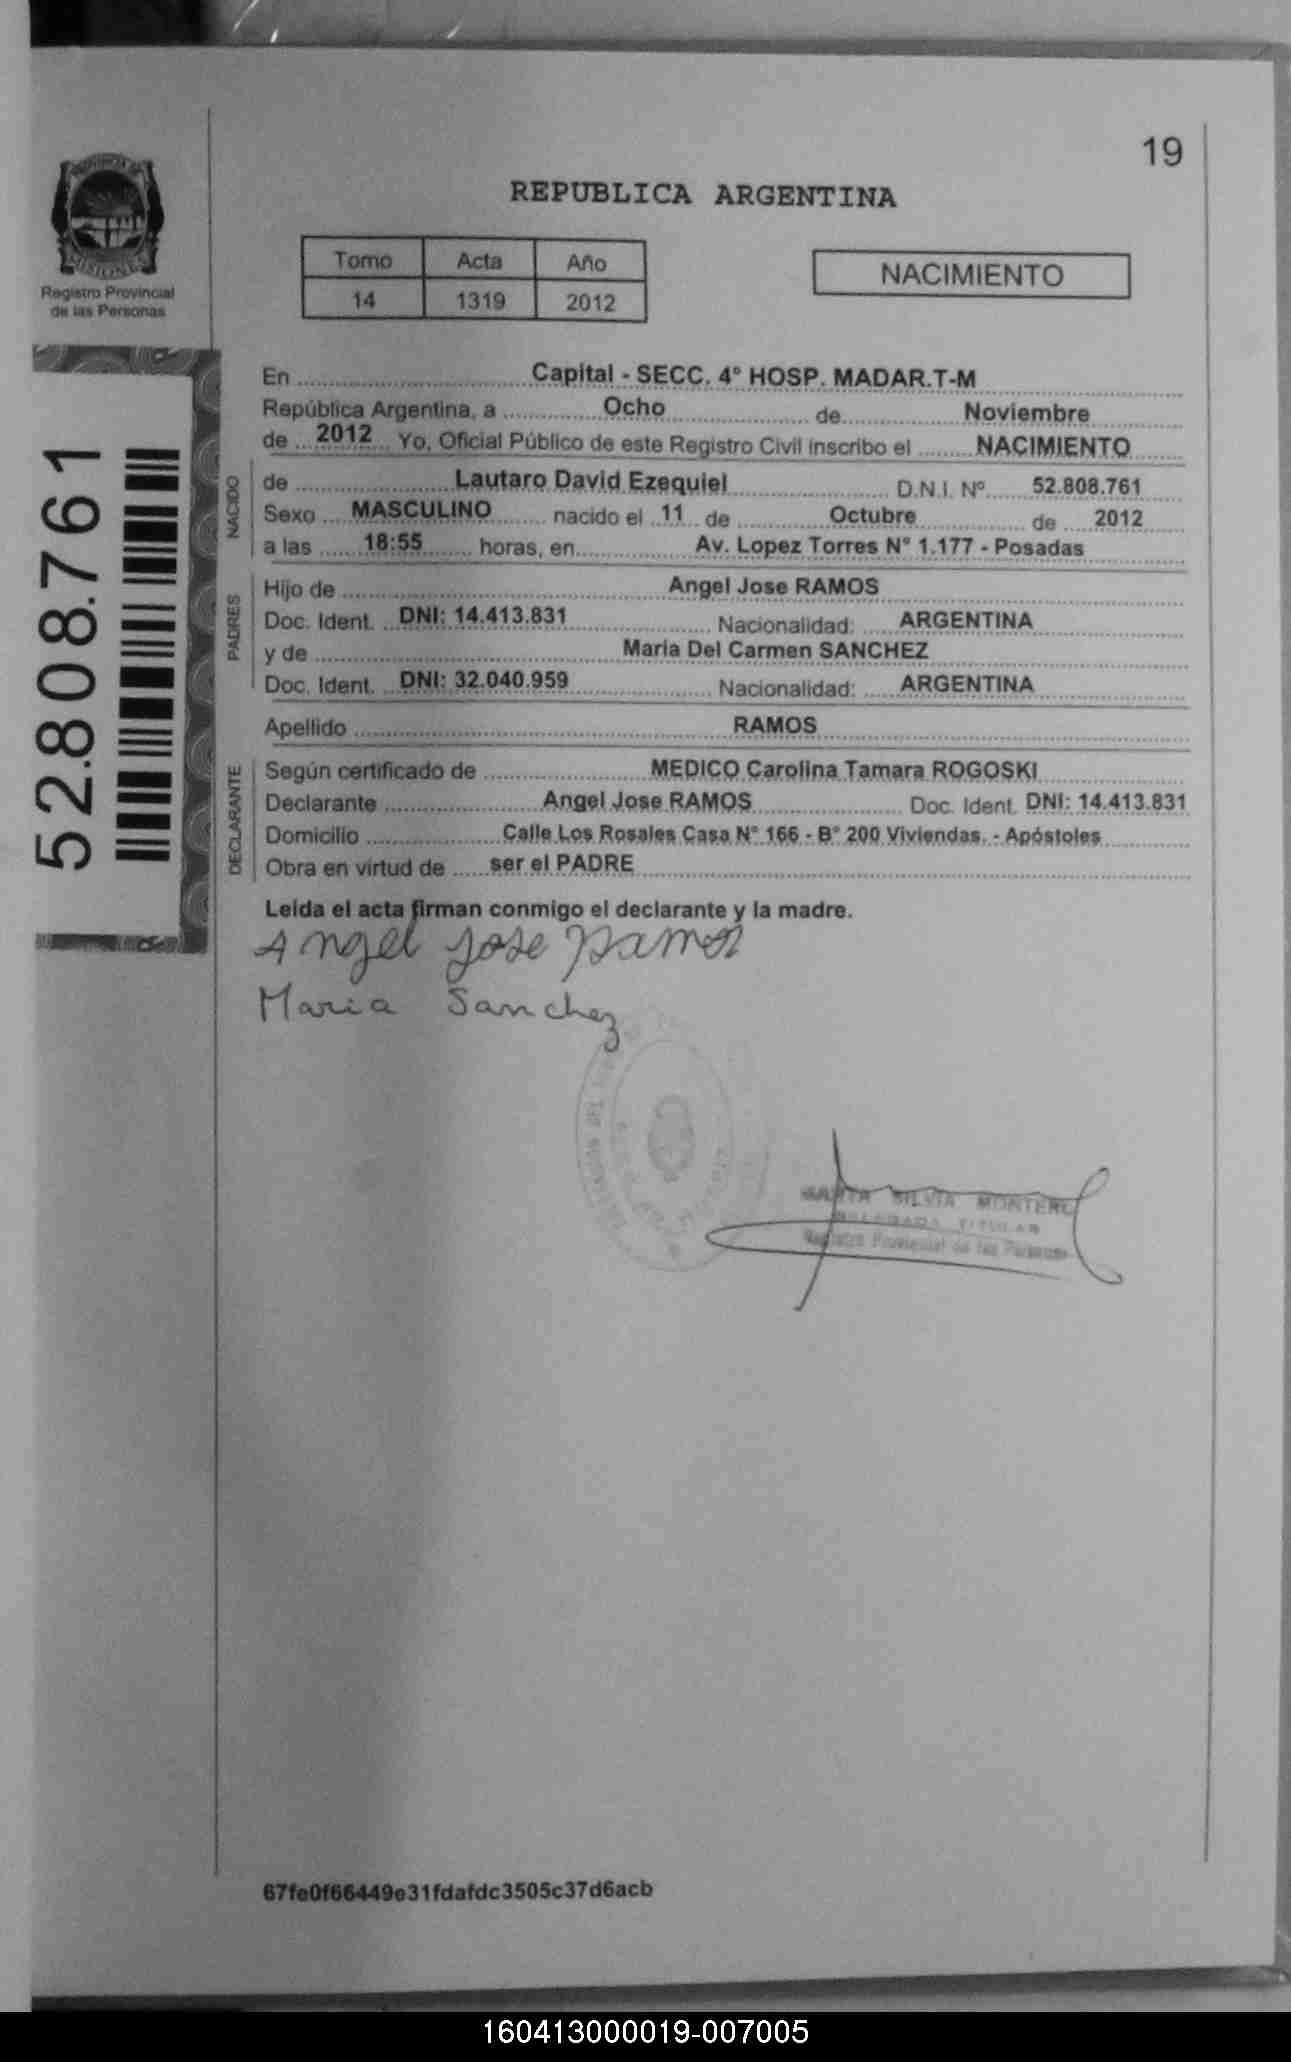 19
REPUBLICA ARGENTINA
PROVINCIA DE
MISIONES
Registro Provincial
de las Personas
Tomo Acta Año
14 1319 2012
NACIMIENTO
52.808.761
En Capital - SECC. 4° HOSP. MADAR.T-M
República Argentina, a Ocho de Noviembre
de 2012 Yo, Oficial Público de este Registro Civil inscribo el NACIMIENTO
NACIDO
de Lautaro David Ezequiel D.N.I. Nº 52.808.761
Sexo MASCULINO nacido el 11 de Octubre de 2012
a las 18:55 horas, en Av. Lopez Torres N° 1.177 - Posadas
PADRES
Hijo de Angel Jose RAMOS
Doc. Ident. DNI: 14.413.831 Nacionalidad: ARGENTINA
y de Maria Del Carmen SANCHEZ
Doc. Ident. DNI: 32.040.959 Nacionalidad: ARGENTINA
Apellido RAMOS
DECLARANTE
Según certificado de MEDICO Carolina Tamara ROGOSKI
Declarante Angel Jose RAMOS Doc. Ident. DNI: 14.413.831
Domicilio Calle Los Rosales Casa N° 166 - B° 200 Viviendas. - Apóstoles
Obra en virtud de ser el PADRE
Leida el acta firman conmigo el declarante y la madre.
Angel Jose Ramos
Maria Sanchez
SILVIA MONTERO
DELEGADA TITULAR
Registro Provincial de las Personas
67fe0f66449e31fdafdc3505c37d6acb
160413000019-007005